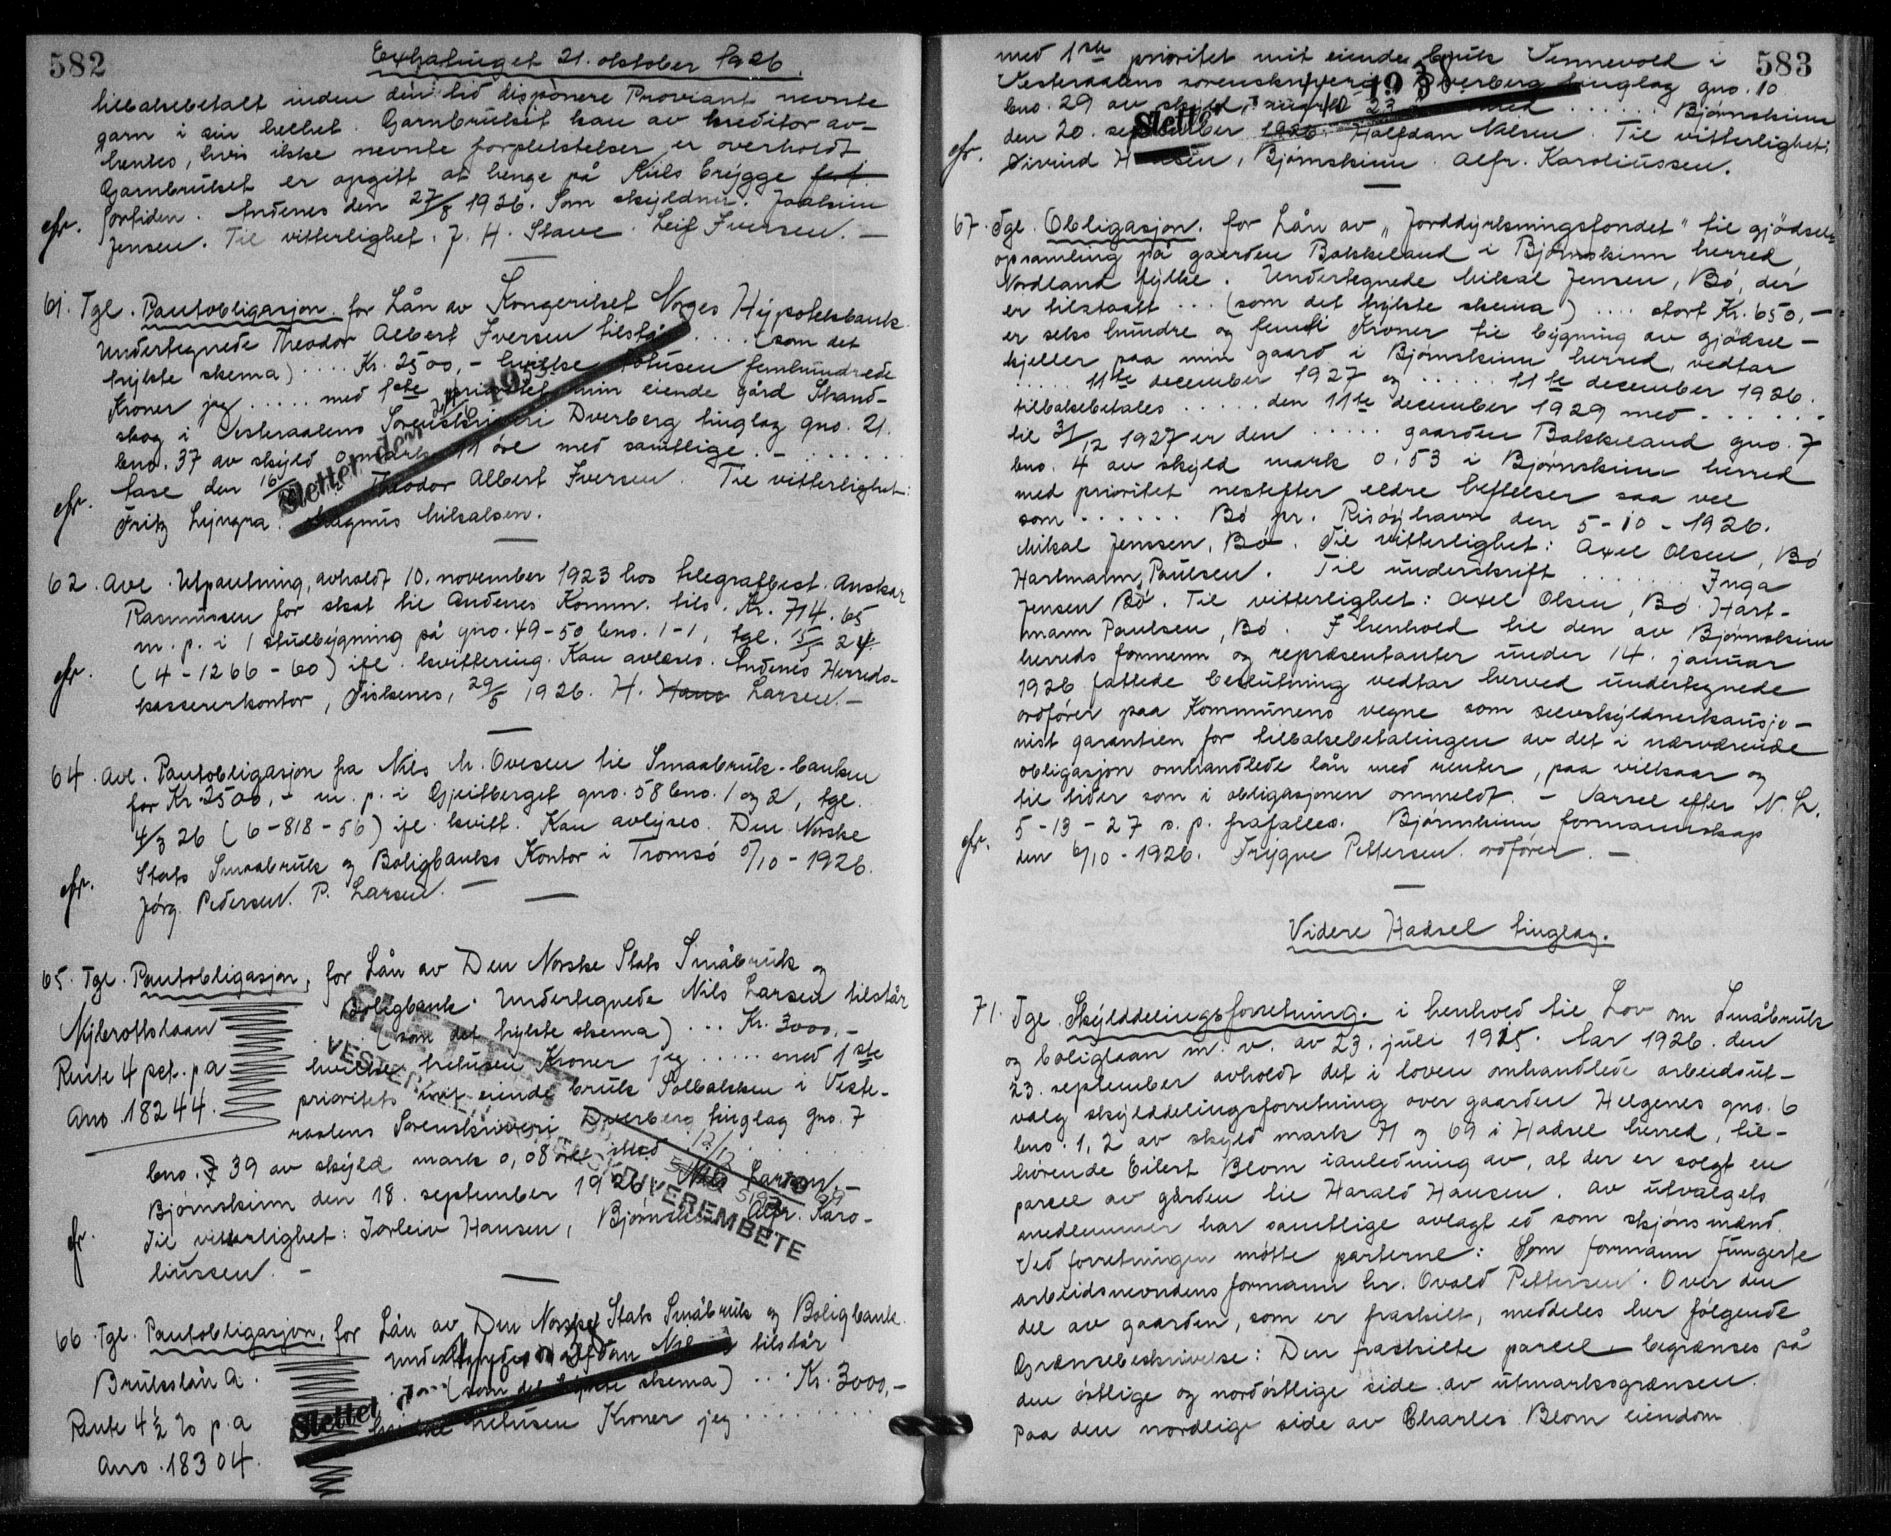 582
Extratinget 21. oktober 1926.
tilbakebetalt inden den tid disponere Proviant nevnte
garn i sin helhet. Garnbruket kan av kreditor av-
hentes, hvis ikke nevnte forpliktelser er overholdt
Garnbruket er opgitt at henge på Kiils brygge
fortiden. Andenes den 27/8 1926. Som skyldner. Joakim
Jensen. Til vitterlighet. J. H. Stave. Leif Iversen. —
61. Tgl. Pantobligasjon for Lån av Kongeriket Norges Hypotekbank
Undertegnede Theodor Albert Iversen tilstår .... (som det
trykte skema) .... Kr. 2500,- hvilke totusen femhundrede
Kroner jeg ..... med 1ste prioritet min eiende gård Skand-
skog i Vesteraalens Sorenskriveri Dverberg tinglag gno. 21.
bno. 37 av skyld 0 mark 11 øre med samtlige. - .......
Aase den Theodor Albert Iversen. Til vitterlighet:
Slettet den
Fritz Lyngra. Magnus Mikalsen.
62. Avl. Utpantning, avholdt 10. november 1923 hos telegrafbest. Anskar
Rasmussen for skat til Andenes Komm. tils. Kr. 714.65
m. p. i 1 stuebygning på gno. 49-50 bno. 1-1, tgl. 15/5 24
(4-1266-60) ifl. kvittering. Kan avlæses. Andenes Herreds-
kassererkontor, Fiskenes, 29/5 1926. H. Hans Larsen. —
64. Avl. Pantobligasjon fra Nils M. Ovesen til Smaabruk-banken
for Kr. 2500,- m. p. i Gjeitberget gno. 58 bno. 1 og 2, tgl.
4/3 26 (6-818-56) ifl. kvitt. Kan avlyses. Den Norske
Stats Smaabruk og Boligbanks Kontor i Tromsö /10-1926.
Jörg. Pedersen. P. Larsen. —
65. Tgl. Pantobligasjon, for Lån av Den Norske Stats Småbruk og
Boligbank. Undertegnede Nils Larsen tilstår
Nybrottslaan
(som det trykte skema) ... Kr. 3000,-
hvilke tretusen Kroner jeg ..... med 1ste
Rente 4 pct. p a
prioritets mit eiende bruk Solbakken i Veste-
Ano 18244.
raalens Sorenskriveri Dverberg tinglag gno. 7
bno. 7 39 av skyld mark 0,08 øre med
SLETTET
VESTERÅLEN SORENSKRIVEREMBETE
Bjørnskinn den 18. september 1926. Nils Larsen. —
Til vitterlighet: Torleiv Hansen, Bjørnskinn Alfr. Karo-
liussen. —
66. Tgl. Pantobligasjon, for Lån av Den Norske Stats Småbruk og Boligbank.
Undertegnede Halfdan Nilsen tilstår
Brukslån A.
(som det trykte skema) ... Kr. 3000,-
Rente 4½ % p. a
Slettet
hvilke tretusen Kroner jeg ..........
Ano. 18304.
583
med 1ste prioritet mit eiende bruk Vennevold i
Vesteraalens sorenskriveri Dverberg tinglag gno. 10
bno. 29 av skyld 23 med ...... Bjørnskinn
Slettet 1938
den 20. september 1926. Halfdan Nilsen. Til vitterlighet:
Eivind Hansen, Bjørnskinn. Alfr. Karoliussen.
67. Tgl. Obligasjon. for Lån av "Jorddyrkningsfondet" til gjödsel-
opsamling på gaarden Bakkeland i Bjørnskinn herred,
Nordland fylke. Undertegnede Mikal Jensen, Bö, der
er tilstaalt ... (som det trykte skema) .... stort Kr. 650,-
er seks hundre og femti Kroner til bygning av gjödsel-
kjeller paa min gaard i Bjørnskinn herred, vedtar
..... 11te december 1927 og ...... 11te december 1926.
tilbakebetales ..... den 11te december 1929 med .......
til 31/12 1927 er den ..... gaarden Bakkeland gno. 7
bno. 4 av skyld mark 0.53 i Bjørnskinn herred
med prioritet nestefter eldre heftelser saa vel
som ...... Bö pr. Risöyhavn den 5-10-1926.
Mikal Jenssen, Bö. Til vitterlighet: Axel Olsen, Bö
Hartmann Paulsen. Til underskrift ....... Inga
Jensen Bö. Til vitterlighet: Axel Olsen, Bö. Hart-
mann Paulsen, Bö. I henhold til den av Bjørnskinn
herreds formenn og repræsentanter under 14. januar
1926 fattede beslutning vedtar herved undertegnede
ordfører paa Kommunens vegne som selvskyldnerkausjo-
nist garantien for tilbakebetalingen av det i nærværende
obligasjon omhandlede lån med renter, paa vilkaar og
til tider som i obligasjonen ommeldt. - Varsel efter N. L.
5-13-27 s. p. frafalles. Bjørnskinn formannskap
den 6/10-1926. Trygve Pettersen. ordfører. —
Videre Hadsel tinglag.
71. Tgl. Skylddelingsforretning. i henhold til Lov om Småbruk
og boliglaan m. v. av 23. juli 1915. Aar 1926. den
23. september avholdt det i loven omhandlede arbeidsut-
valg skylddelingsforretning over gaarden Helgenes gno. 6
bno. 1, 2 av skyld mark 71 og 69 i Hadsel herred, til-
hørende Eilert Blom i anledning av, at der er solgt en
parcel av gården til Harald Hansen. Av utvalgets
medlemmer har samtlige avlagt ed som skjönsmænd.
Ved forretningen møtte parterne: Som formann fungerte
arbeidsnevndens formann hr. Ovald Pettersen. Over den
del av gaarden, som er fraskilt, meddeles her følgende
Grænsebeskrivelse: Den fraskilte parcel begrænses på
den östlige og nordöstlige side av utmarksgrænsen.
Paa den nordlige side av Charles Blom eiendom